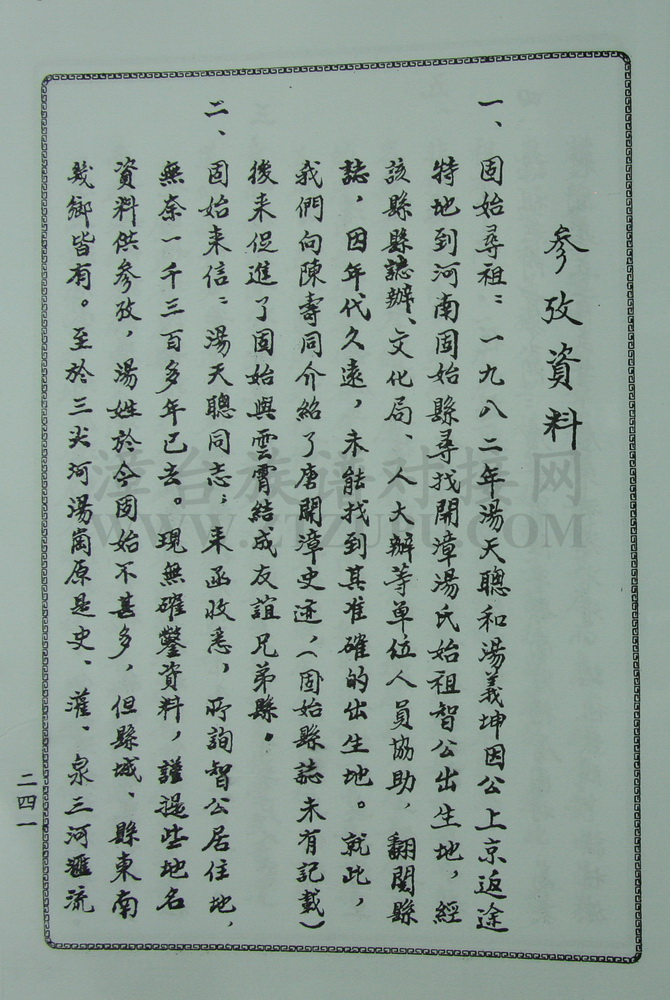 參攷資料
一、固始尋祖：一九八二年湯天聰和湯義坤因公上京返途
特地到河南固始縣尋找開漳湯氏始祖智公出生地，經
該縣縣誌辦、文化局、人大辦等單位人員協助，翻閱縣
誌，因年代久遠，未能找到其准確的出生地。就此，
我們向陳壽同介紹了唐開漳史迹，（固始縣誌未有記載）
後來促進了固始與雲霄結成友誼兄弟縣。
二、固始來信：湯天聰同志：來函收悉，所詢智公居住地，
無奈一千三百多年已去。現無確鑿資料，謹提些地名
資料供參攷，湯姓於今固始不甚多，但縣城、縣東南
幾鄉皆有。至於三尖河湯崗原是史、灌、泉三河滙流
二四一
WWW.ZTZUPU.COM